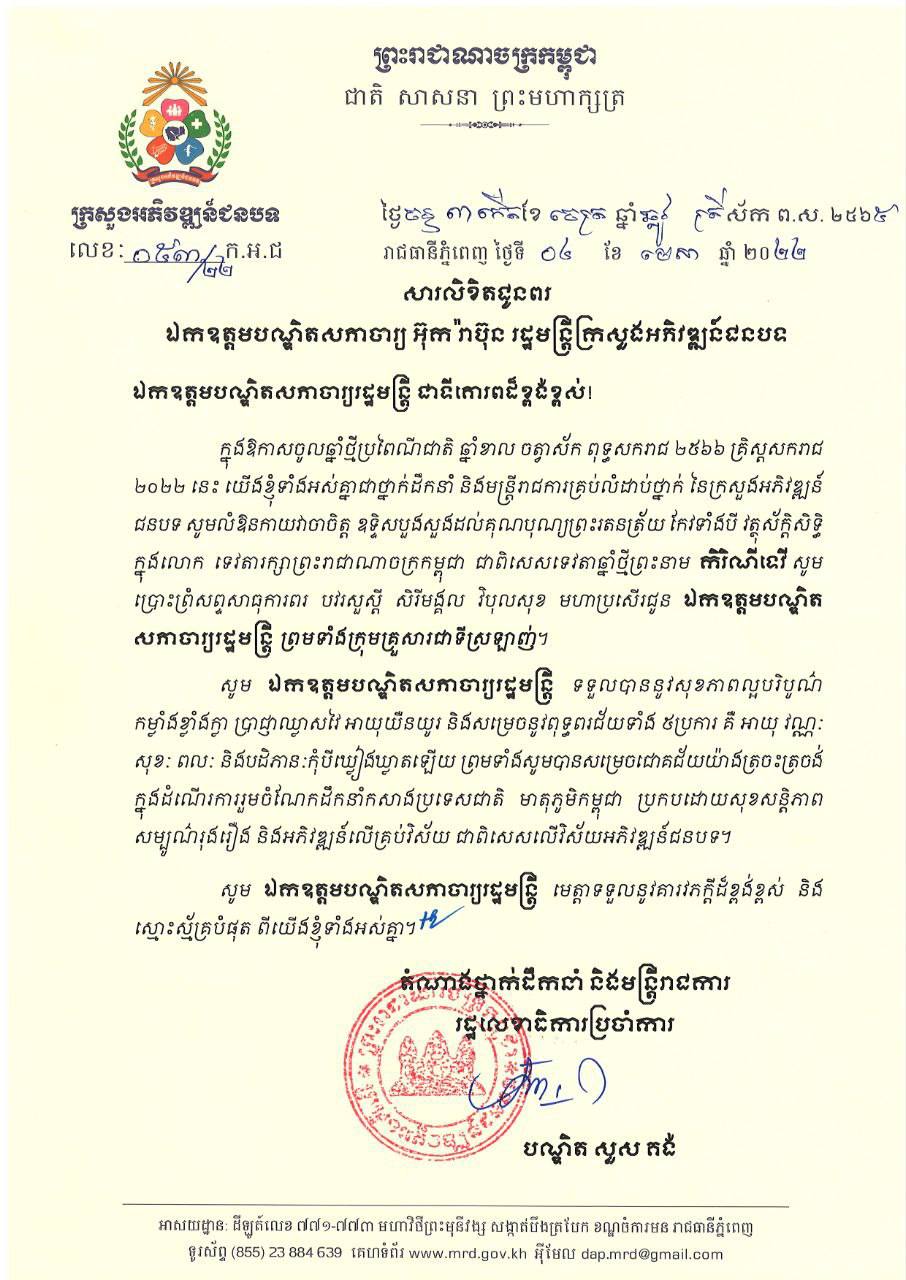 ព្រះរាជាណាចក្រកម្ពុជា
ជាតិ សាសនា ព្រះមហាក្សត្រ
ក្រសួងអភិវឌ្ឍន៍ជនបទ
លេខៈ ០៥៣/២២ ក.អ.ជ
ថ្ងៃចន្ទ ៣កើត ខែ ចេត្រ ឆ្នាំឆ្លូវ ត្រីស័ក ព.ស. ២៥៦៥
រាជធានីភ្នំពេញ ថ្ងៃទី ០៤ ខែ មេសា ឆ្នាំ ២០២២
សារលិខិតជូនពរ
ឯកឧត្តមបណ្ឌិតសភាចារ្យ អ៊ុក រ៉ាប៊ុន រដ្ឋមន្ត្រីក្រសួងអភិវឌ្ឍន៍ជនបទ
ឯកឧត្តមបណ្ឌិតសភាចារ្យរដ្ឋមន្ត្រី ជាទីគោរពដ៏ខ្ពង់ខ្ពស់!
ក្នុងឱកាសចូលឆ្នាំថ្មីប្រពៃណីជាតិ ឆ្នាំខាល ចត្វាស័ក ពុទ្ធសករាជ ២៥៦៦ គ្រិស្តសករាជ
២០២២ នេះ យើងខ្ញុំទាំងអស់គ្នាជាថ្នាក់ដឹកនាំ និងមន្ត្រីរាជការគ្រប់លំដាប់ថ្នាក់ នៃក្រសួងអភិវឌ្ឍន៍
ជនបទ សូមលំឱនកាយវាចាចិត្ត ឧទ្ទិសបួងសួងដល់គុណបុណ្យព្រះរតនត្រ័យ កែវទាំងបី វត្ថុស័ក្តិសិទ្ធិ
ក្នុងលោក ទេវតារក្សាព្រះរាជាណាចក្រកម្ពុជា ជាពិសេសទេវតាឆ្នាំថ្មីព្រះនាម កិរិណីទេវី សូម
ប្រោះព្រំសព្ទសាធុការពរ បវរសួស្តី សិរីមង្គល វិបុលសុខ មហាប្រសើរជូន ឯកឧត្តមបណ្ឌិត
សភាចារ្យរដ្ឋមន្ត្រី ព្រមទាំងក្រុមគ្រួសារជាទីស្រឡាញ់។
សូម ឯកឧត្តមបណ្ឌិតសភាចារ្យរដ្ឋមន្ត្រី ទទួលបាននូវសុខភាពល្អបរិបូណ៌
កម្លាំងខ្លាំងក្លា ប្រាជ្ញាឈ្លាសវៃ អាយុយឺនយូរ និងសម្រេចនូវពុទ្ធពរជ័យទាំង ៥ប្រការ គឺ អាយុ វណ្ណៈ
សុខៈ ពលៈ និងបដិភានៈកុំបីឃ្លៀងឃ្លាតឡើយ ព្រមទាំងសូមបានសម្រេចជោគជ័យយ៉ាងត្រចះត្រចង់
ក្នុងដំណើរការរួមចំណែកដឹកនាំកសាងប្រទេសជាតិ មាតុភូមិកម្ពុជា ប្រកបដោយសុខសន្តិភាព
សម្បូណ៌រុងរឿង និងអភិវឌ្ឍន៍លើគ្រប់វិស័យ ជាពិសេសលើវិស័យអភិវឌ្ឍន៍ជនបទ។
សូម ឯកឧត្តមបណ្ឌិតសភាចារ្យរដ្ឋមន្ត្រី មេត្តាទទួលនូវគារវភក្តីដ៏ខ្ពង់ខ្ពស់ និង
ស្មោះស្ម័គ្របំផុត ពីយើងខ្ញុំទាំងអស់គ្នា។
តំណាងថ្នាក់ដឹកនាំ និងមន្ត្រីរាជការ
រដ្ឋលេខាធិការប្រចាំការ
បណ្ឌិត សួស គង់
អាសយដ្ឋានៈ ដីឡូត៍លេខ ៧៧១-៧៧៣ មហាវិថីព្រះមុនីវង្ស សង្កាត់បឹងត្របែក ខណ្ឌចំការមន រាជធានីភ្នំពេញ
ទូរស័ព្ទ (855) 23 884 639 គេហទំព័រ www.mrd.gov.kh អ៊ីមែល dap.mrd@gmail.com